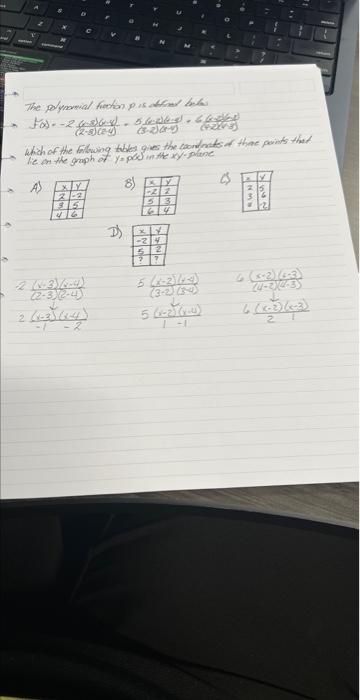 The polynomial function p is defined below
f(x) = -2 (x-3)(x-4) / (2-3)(2-4) + 5 (x-2)(x-4) / (3-2)(3-4) + 6 (x-2)(x-3) / (4-2)(4-3)
which of the following tables gives the coordinates of three points that
lie on the graph of y = p(x) in the xy-plane
A) x y B) x y C) x y
2 -2 -2 2 2 5
3 5 5 3 3 6
4 6 6 4
D) x y
-2 4
5 2
? ?
-2 (x-3)(x-4) / (2-3)(2-4) 5 (x-2)(x-4) / (3-2)(3-4) 6 (x-2)(x-3) / (4-2)(4-3)
↓ ↓ ↓
2 (x-3)(x-4) / -1 -2 5 (x-2)(x-4) / 1 -1 6 (x-2)(x-3) / 2 1